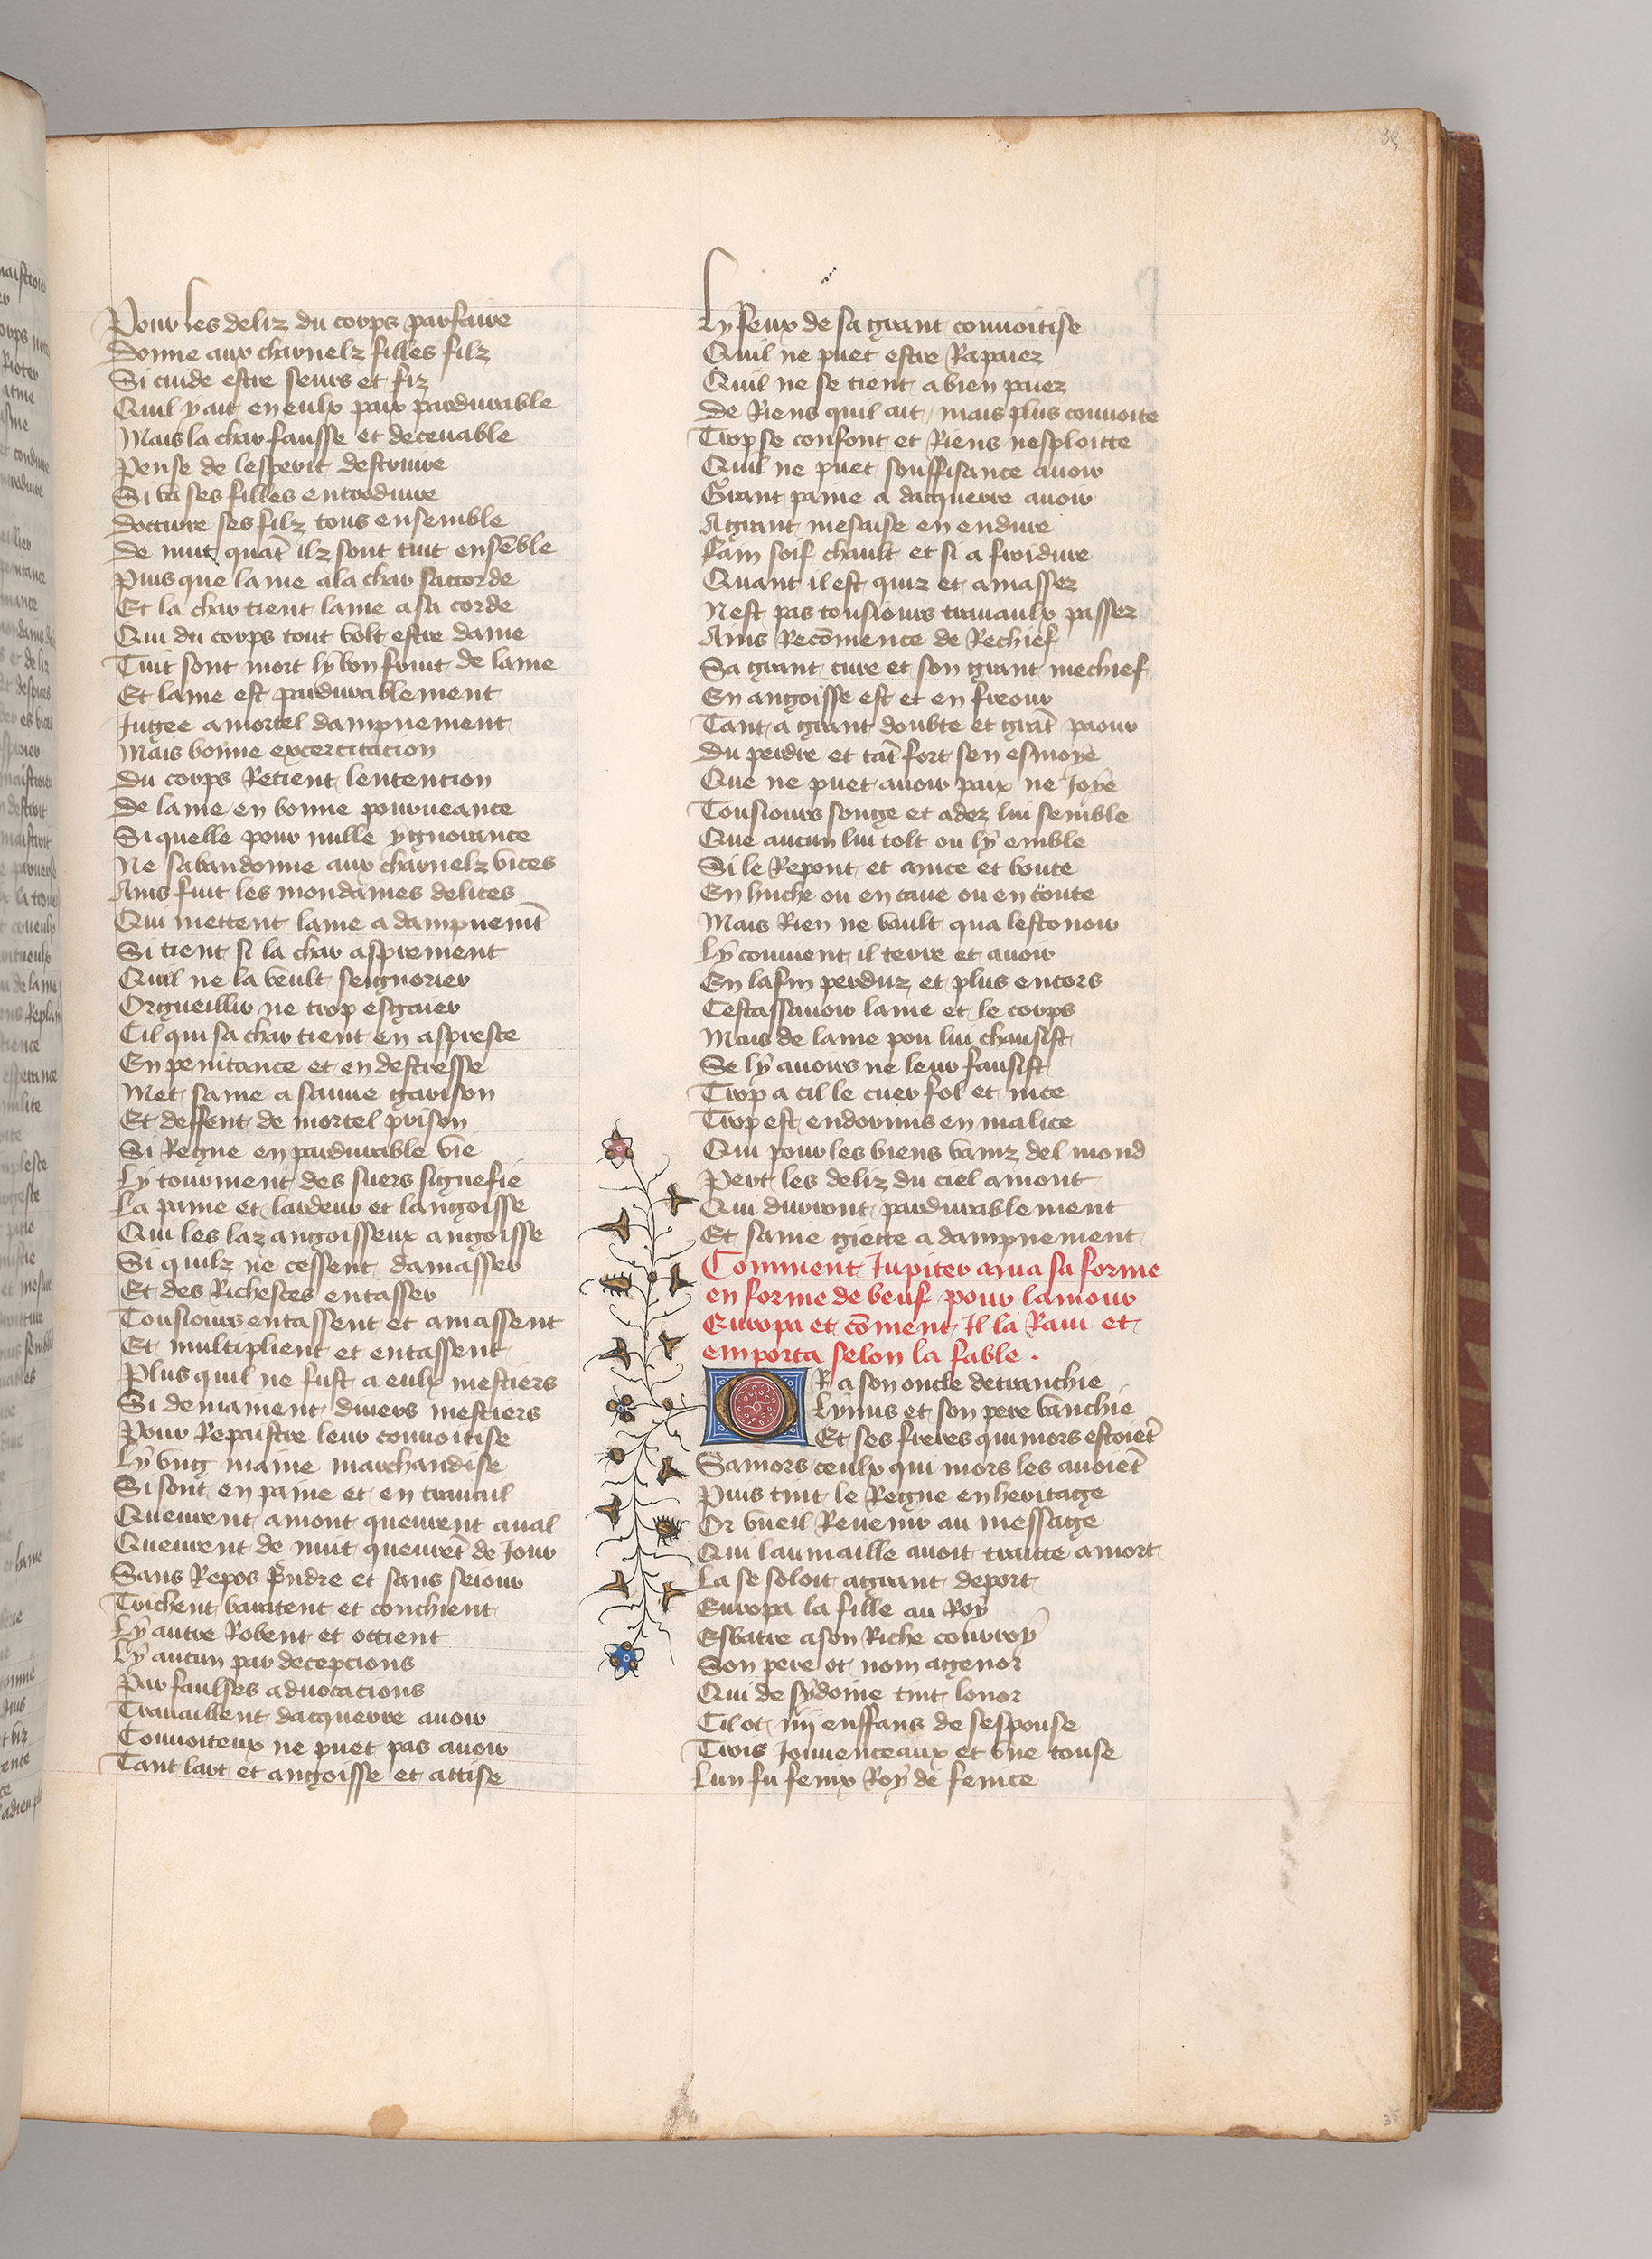 35
Pour les deliz du corps parfaire
Donne aux charnelz filles filz
Si cuide estre seurs et fiz
Quil y ait en eulx paix pardurable
Mais la char fausse et deceuable
Pense de lesperit destruire
Si va ses filles entroduire
Doccirre ses filz tous ensemble
De nuit quāt ilz sont tuit ensēble
Puis que lame a la char saccorde
Et la char tient lame a sa corde
Qui du corps tout volt estre dame
Tuit sont mort ly bon fruit de lame
Et lame est pardurablement
Jugee a mortel dampnement
Mais bonne excercitacion
Du corps Retient lentencion
De lame en bonne pourueance
Si quelle pour nulle ygnorance
Ne sabandonne aux charnelz vices
Ains fuit les mondaines delices
Qui mettent lame a dampnemēt
Si tient si la char asprement
Quil ne la veult seignorier
Orgueillir ne trop esgaier
Cil qui sa char tient en aspresce
En penitance et en destresse
Met same a sauue garison
Et deffent de mortel prison
Si Regne en pardurable vie
Ly tourment des suers signefie
La paine et lardeur et langoisse
Qui les laz angoisseux angoisse
Si quilz ne cessent damasser
Et des Richesces entasser
Tousiours entassent et amassent
Et multiplient et entassent
Plus quil ne fust a eulx mestiers
Si demainent diuers mestiers
Pour Repaistre leur conuoitise
Ly vng maine marchandise
Si sont en paine et en trauail
Queurent amont queurent aual
Queurent de nuit queurēt de Jour
Sans Repos pndre et sans seiour
Trichent baratent et conchient
Ly autre Robent et occient
Ly aucun par decepcions
Par faulses aduocacions
Trauaillent dacquerre auoir
Conuoiteux ne puet pas auoir
Tant lart et angoisse et attise
Ly feux de sa grant conuoitise
Quil ne puet estre Rapaiez
Quil ne se tient a bien paiez
De Riens quil ait mais plus conuoite
Trop se confont et Riens nesploitte
Quil ne puet souffisance auoir
Grant paine a dacquerre auoir
A grant mesaise en endure
Fain soif chault et si a froidure
Quant il est quiz et amassez
Nest pas tousiours trauaulx passez
Ains Recōmence de Rechief
Sa grant cure et son grant mechief
En angoisse est et en freour
Tant a grant doubte et grāt paour
Du perdre et tāt fort sen esmoye
Que ne puet auoir paix ne Joye
Tousiours songe et adez lui semble
Que aucun lui tolt ou ly emble
Si le Repont et muce et boute
En huche ou en caue ou en coute
Mais Rien ne vault qua lestouoir
Ly conuient il terre et auoir
En la fin perduz et plus encors
Cestassauoir lame et le corps
Mais de lame pou lui chausist
Se ly auoirs ne leur fausist
Trop a cil le cuer fol et nice
Trop est endormis en malice
Qui pour les biens vainz del mond
Pert les deliz du ciel amont
Qui durront pardurablement
Et same giette a dampnement
Comment Jupiter mua sa forme
en forme de beuf pour lamour
Europa et cōment Il la Raui et
emporta selon la fable .
OR a son oncle detranchie
Lymus et son pere vanchie
Et ses freres qui mors estoiēt
Samors ceulx qui mors les auoiēt
Puis tint le Regne en heritage
Or vueil Reuenir au message
Qui laumaille auoit traitte a mort
La se soloit a grant deport
Europa la fille au Roy
Esbatre a son Riche conrroy
Son pere ot nom agenor
Qui de sydoine tint lonor
Cil ot iiij enffans de sespouse
Trois Jouuenceaux et vne touse
Lun fu fenix Roy de fenice